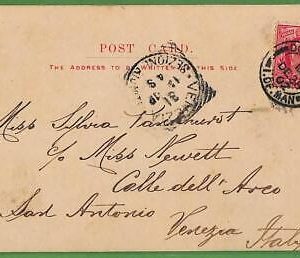 POST CARD.
THE ADDRESS TO BE WRITTEN ON THIS SIDE
Miss Sylvia Pankhurst
c/o Miss Newett
Calle dell' Arco
San Antonio
Venezia
Italy